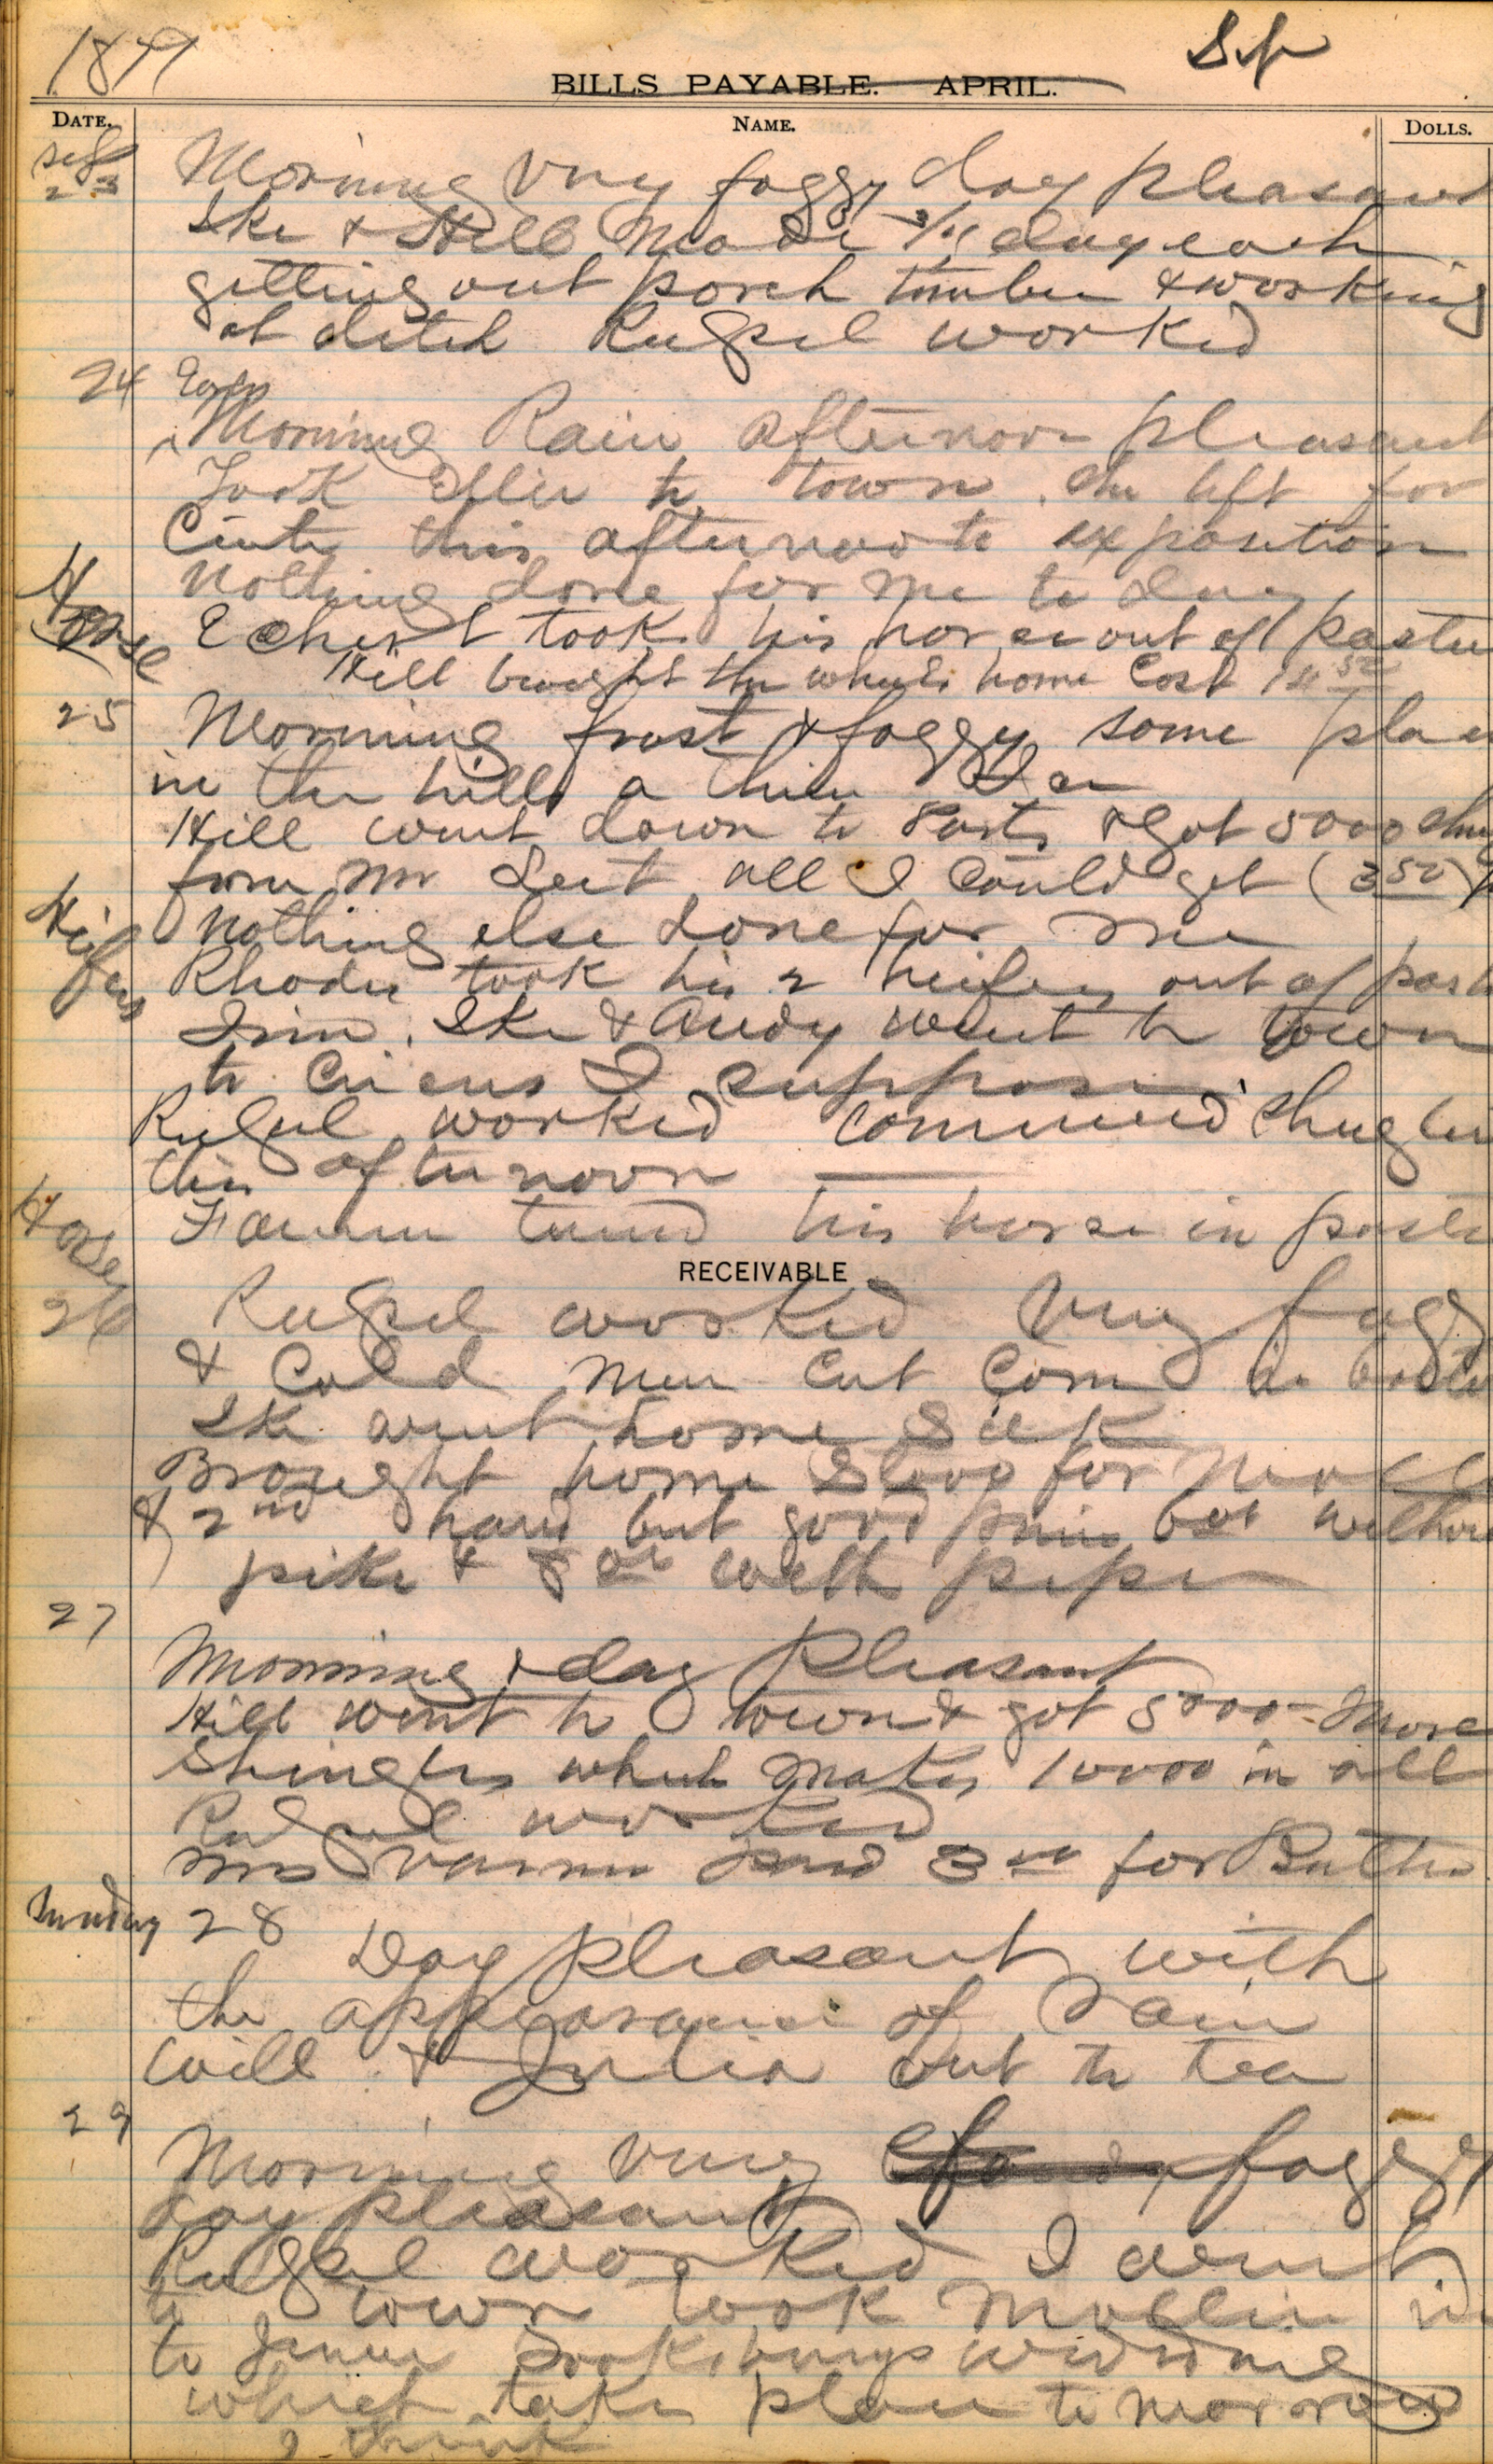 18
Sep
BILLS PAYABLE. APRIL.
DATE. NAME. DOLLS.
Sep 23 Morning very foggy day pleasant
Ike & Hill made 3/4 day each
getting out porch timber & working
at ditch Rugsel worked
24 Early
Morning Rain afternoon pleasant
Took Effie to town. She left for
Cinti this afternoo to exposition
Nothing done for me to day
Horse Echert took his horse out of pastu
Hill brought the wheels home Cost
25 Morning frost & foggy some place
in the hills a thin Ice
Hill went down to Ports & got 5000 shing
from Mr Leet all I could get (3 50)
Nothing else done for me
Heifers Rhodes took his 2 heifers out of past
Jim. Ike & Andy went to town
to Circus I suppose
Rugsel worked commenced shingling
this afternoon
Horse turned his horse in paste
RECEIVABLE
26 Rugsel worked Very fogg
& Cold men cut Corn in
Ike went home Sick
Brought home Stove for Moll
& 2nd hand but good price but without
pike & 8 with pipe
27
Morning & day Pleasant
Hill went to town & got 5000 More
Shingles which makes 10000 in all
Rugsel worked
Mrs Varner paid 3 00 for Butter
Sunday 28 Day pleasant with
the appearance of Rain
Will & Julia out to tea
29
Morning very foggy
day pleasant
Rugsel worked I went
to town took Mollie in
to Jennie Brooksburys wedding
which takes place to morrow
I think